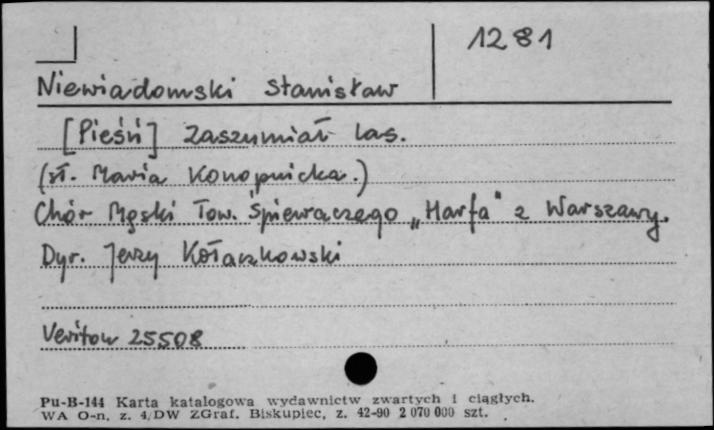 1281
Niewiadomski Stanisław
[Pieśń] Zaszumiał las.
(sł. Maria Konopnicka.)
Chór Męski Tow. Śpiewaczego „Harfa" z Warszawy.
Dyr. Jerzy Kołaczkowski
Veriton 25508
Pu-B-144 Karta katalogowa wydawnictw zwartych i ciągłych.
WA O-n. z. 4/DW ZGraf. Biskupiec, z. 42-90 2 070 000 szt.